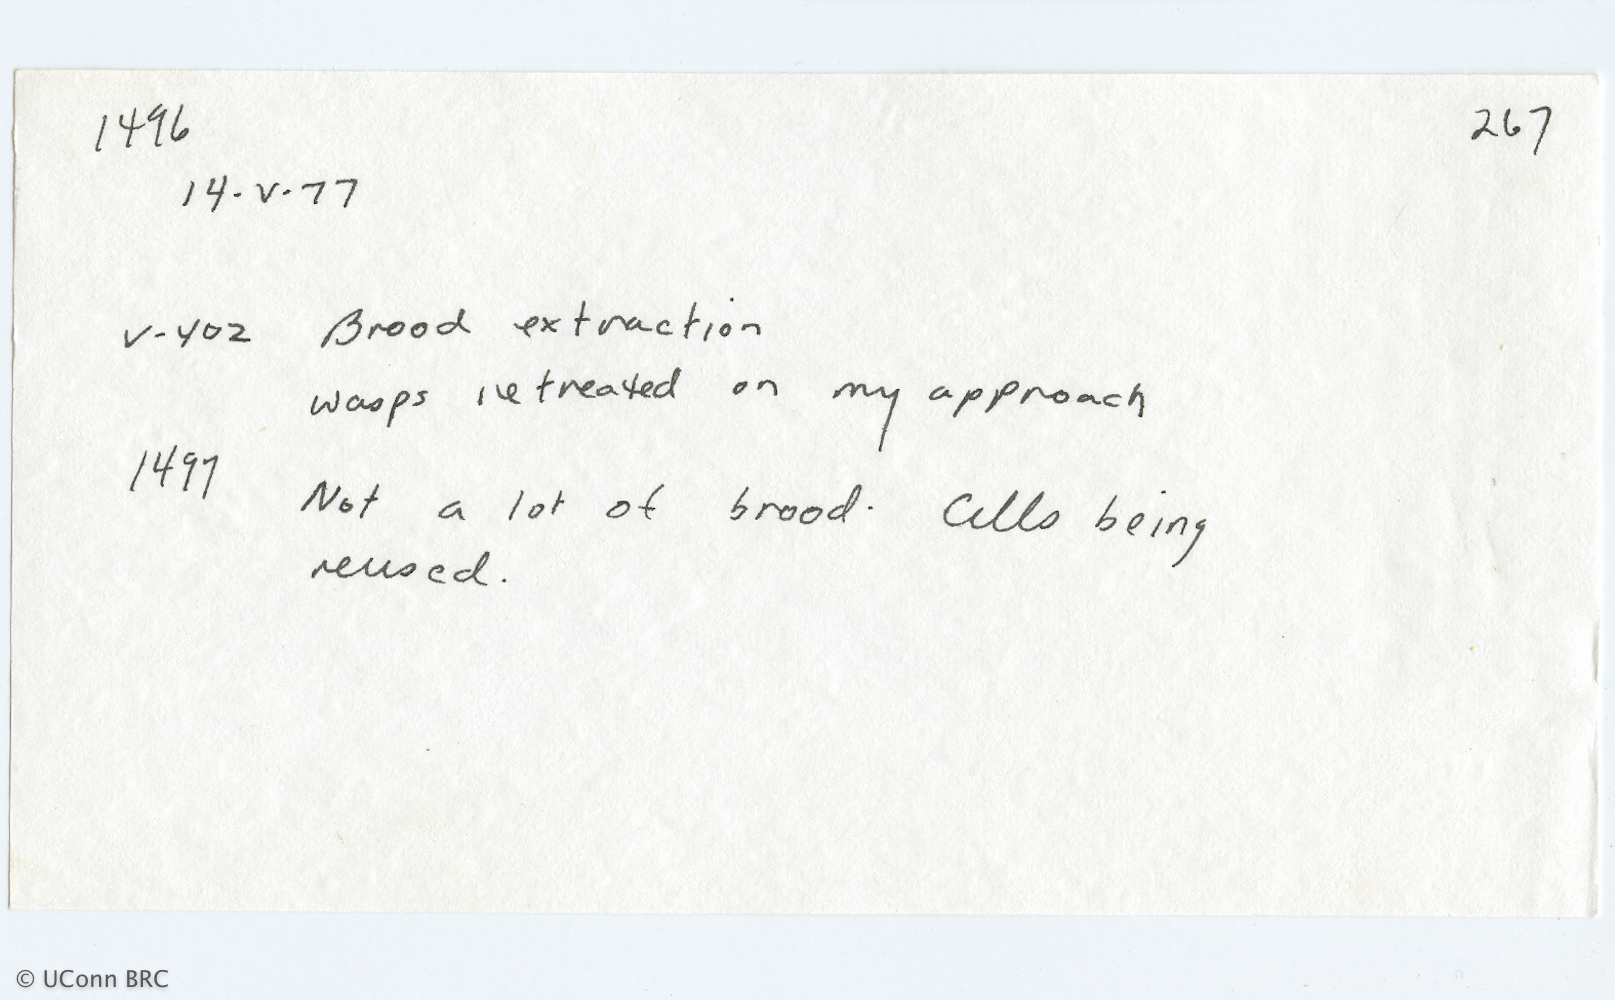 1496
267
14-V-77
V-402 Brood extraction
wasps retreated on my approach
1497
Not a lot of brood. Cells being
reused.
© UConn BRC